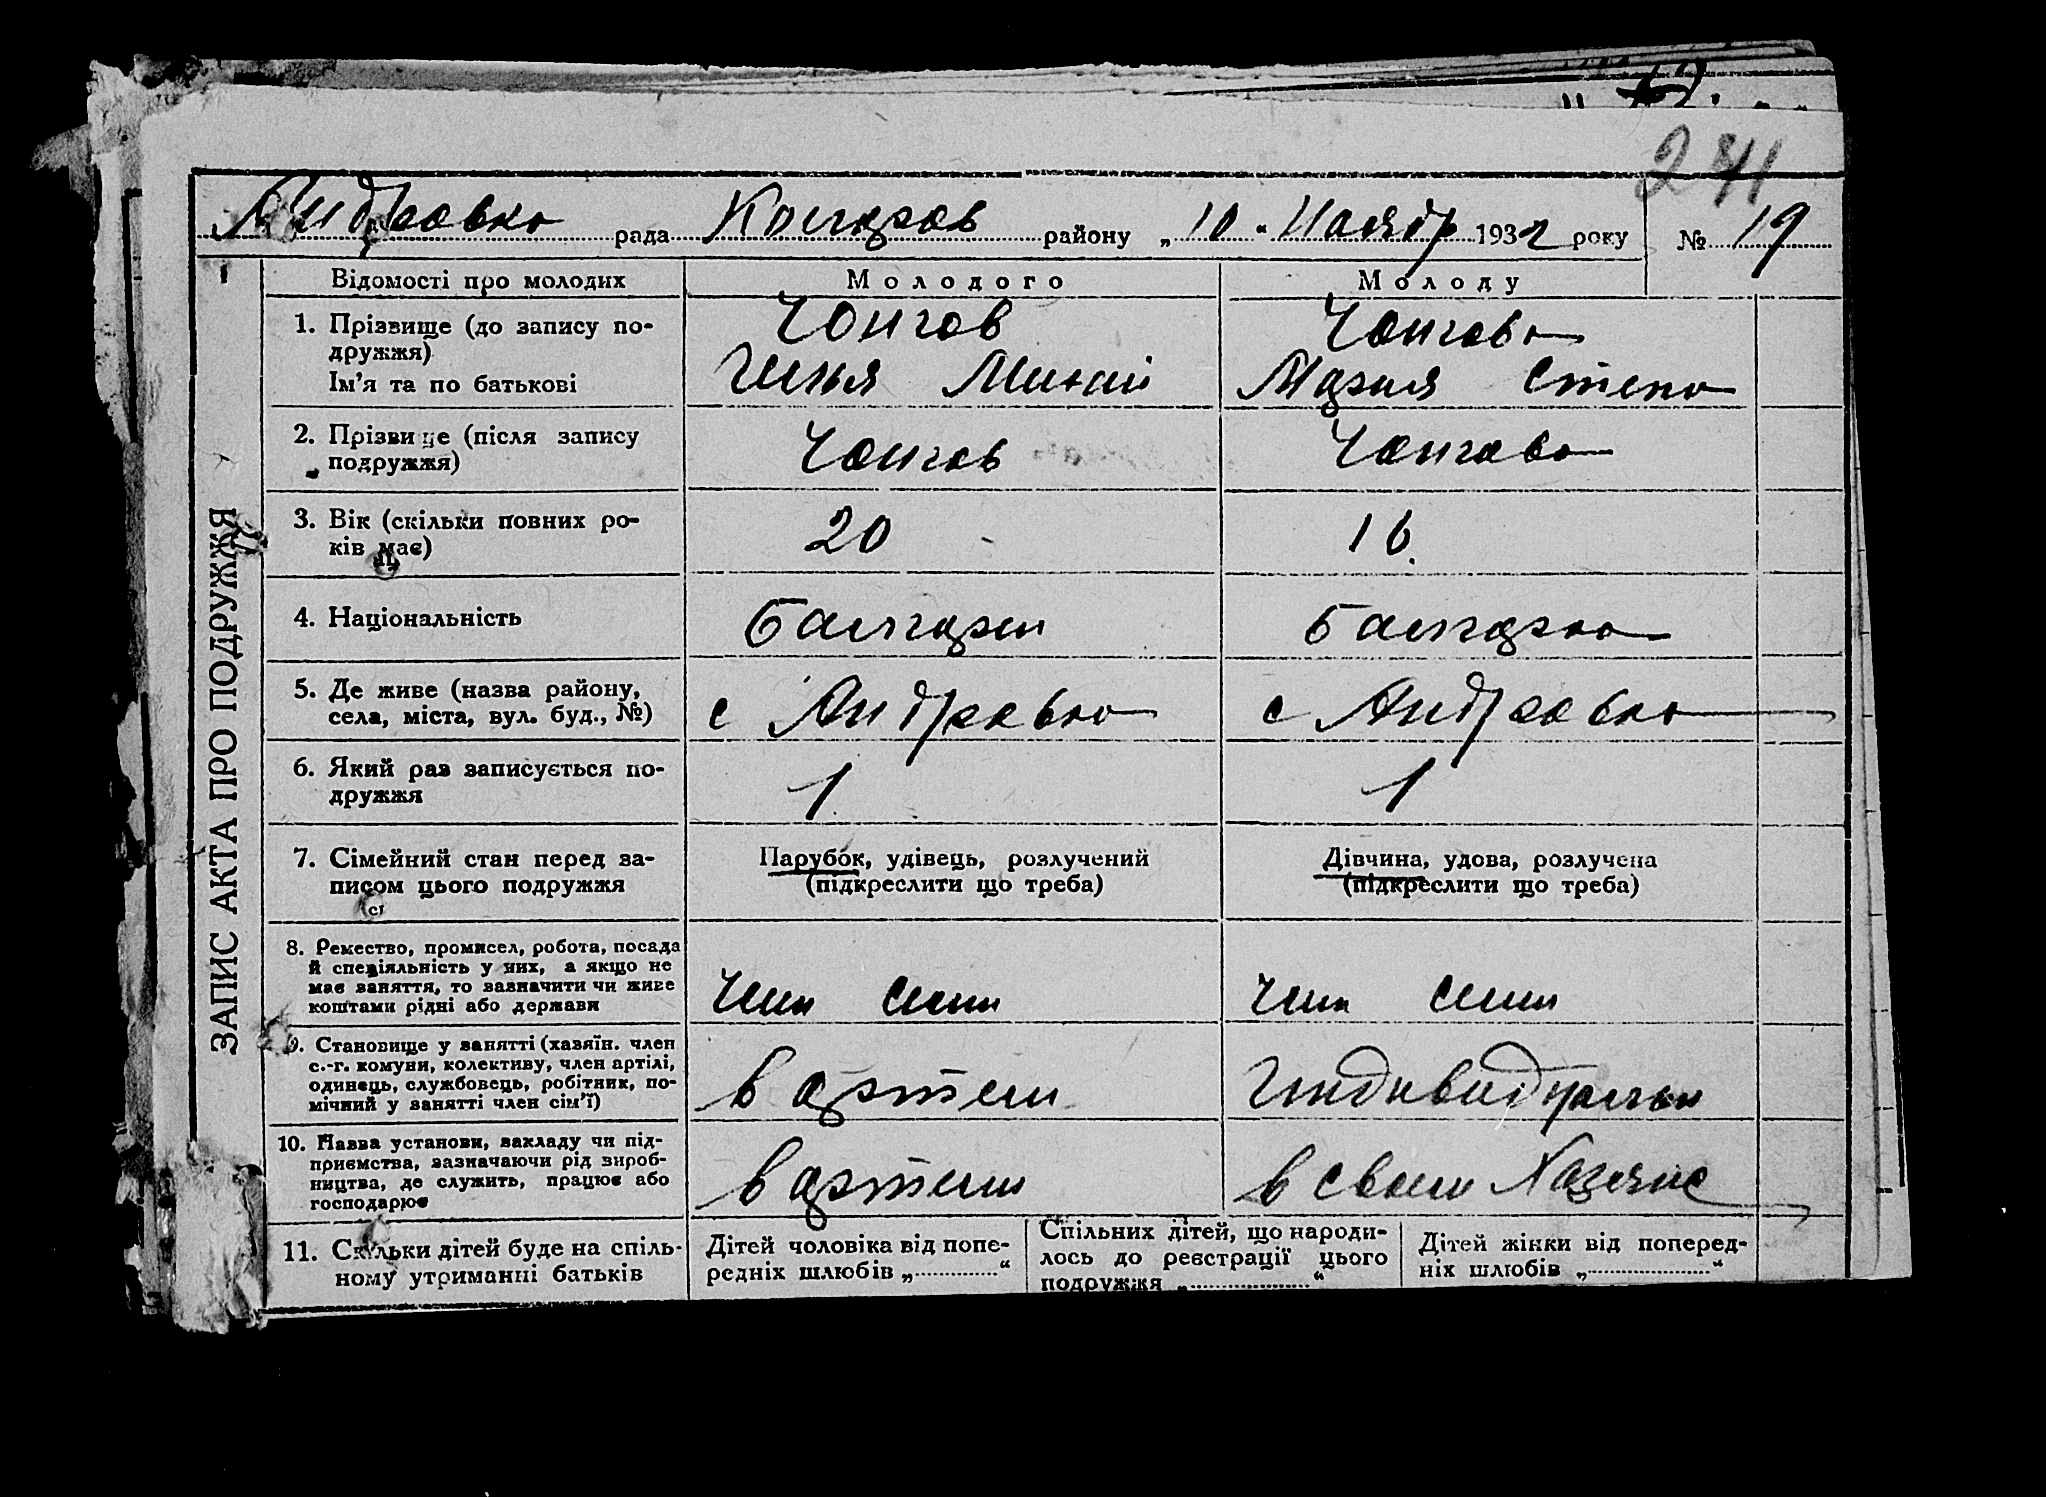 241
Андровка рада Коларов району „10“ Ноябр 1932 року № 19
ЗАПИС АКТА ПРО ПОДРУЖЖЯ
Відомості про молодих
Молодого
Молоду
1. Прізвище (до запису по-
дружжя)
Ім'я та по батькові
Чонгов
Илья Минай
Чонгова
Мария Степа
2. Прізвище (після запису
подружжя)
Чонгов
Чонгова
3. Вік (скільки повних ро-
ків має)
20
16
4. Національність
Балгарин
Балгарка
5. Де живе (назва району,
села, міста, вул. буд., №)
с Андровка
с Андровка
6. Який раз записується по-
дружжя
1
1
7. Сімейний стан перед за-
писом цього подружжя
Парубок, удівець, розлучений
(підкреслити що треба)
Дівчина, удова, розлучена
(підкреслити що треба)
8. Ремество, промисел, робота, посада
й спеціяльність у них, а якщо не
має заняття, то зазначити чи живе
коштами рідні або держави
Член семи
член семи
9. Становище у занятті (хазяїн. член
с.-г. комуни, колективу, член артілі,
одинець, службовець, робітник, по-
мічний у занятті член сім'ї)
в артели
Индивидуальн
10. Назва установи, закладу чи під-
приємства, зазначаючи рід вироб-
ництва, де служить, працює або
господарює
в артели
в своем Хозяис
11. Скільки дітей буде на спіль-
ному утриманні батьків
Дітей чоловіка від попе-
редніх шлюбів „..............“
Спільних дітей, що народи-
лось до реєстрації цього
подружжя „..................“
Дітей жінки від поперед-
ніх шлюбів „..................“